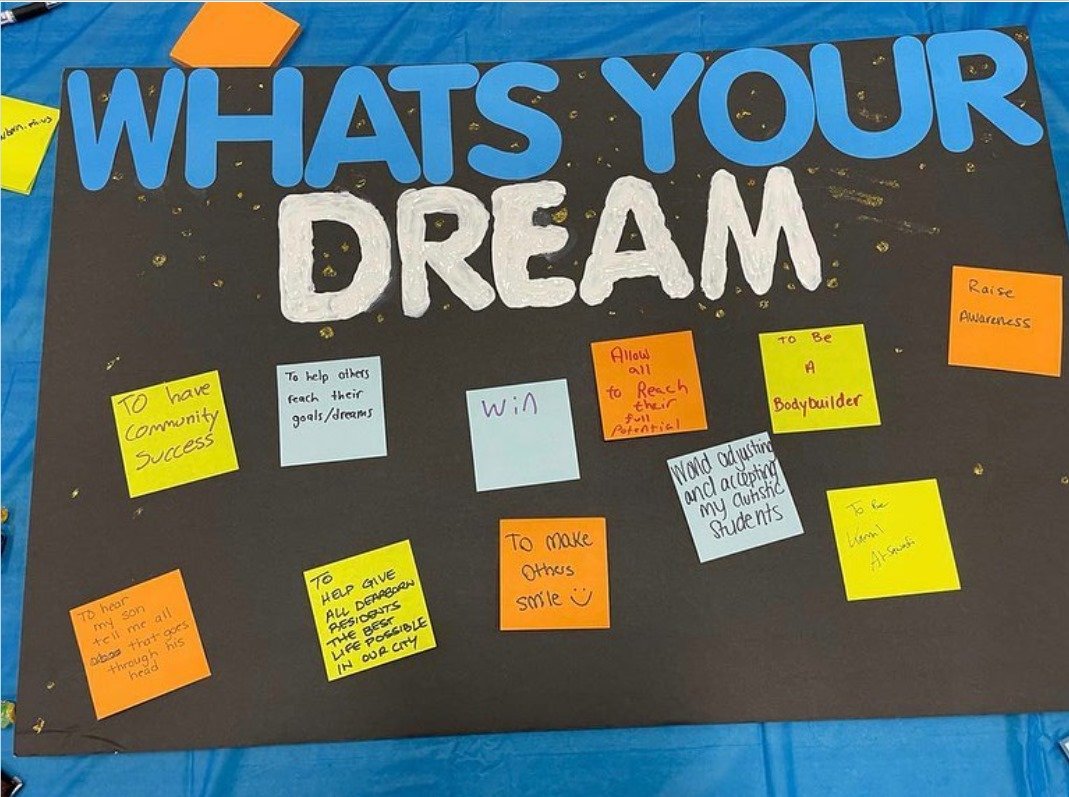 WHATS YOUR
DREAM
Raise
Awareness
TO have
Community
Success
To help others
reach their
goals/dreams
Win
Allow
all
to Reach
their
full
Potential
TO Be
A
Bodybuilder
World adjusting
and accepting
my autistic
students
To Be
TO hear
my son
tell me all
that goes
through his
head
TO
HELP GIVE
ALL DEARBORN
RESIDENTS
THE BEST
LIFE POSSIBLE
IN OUR CITY
To make
Others
smile